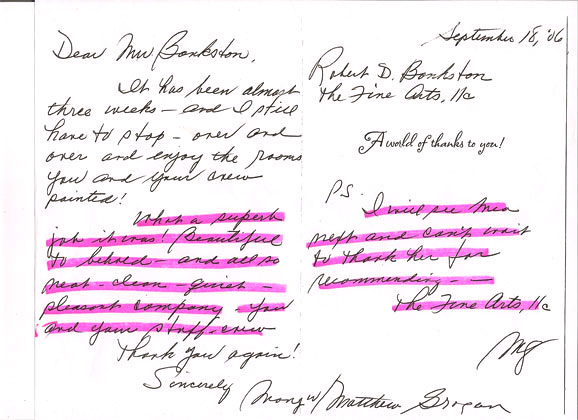 Dear Mr Bankston,
It has been almost
three weeks - and I still
have to stop - over and
over and enjoy the rooms
you and your crew
painted!
What a superb
job it was! Beautiful
to behold - and all so
neat - clean - quiet -
pleasant company - you
and your staff-crew
Thank you again!
Sincerely
/Matthew Grogan
September 18, '06
Robert D. Bankston
The Fine Arts, llc
A world of thanks to you!
P.S.
I will see
next and can't wait
to thank her for
recommending - -
the Fine Arts, llc
MG